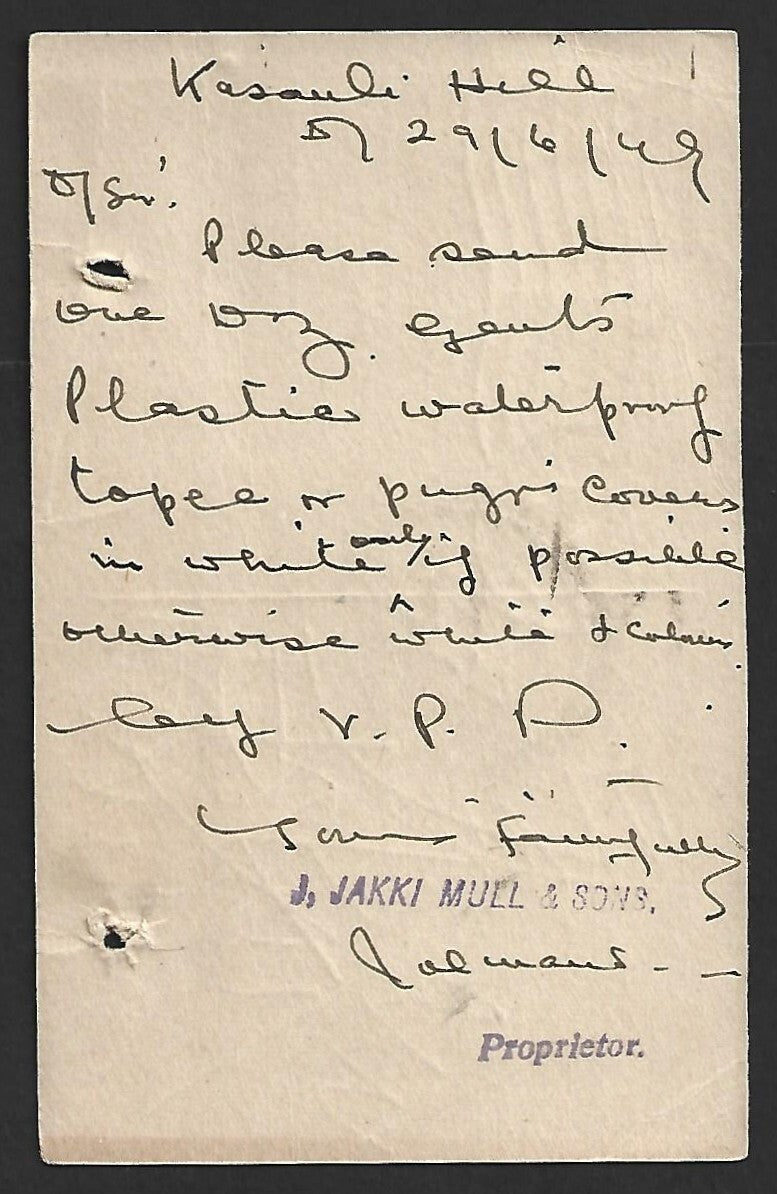 Kasauli Hill
D/ 29/6/49
D/Sir.
Please send
one Doz. gents
Plastic waterproof
topee or pugri covers
in white only if possible
otherwise in white & colours
by V. P. P.
Yours Faithfully
J. JAKKI MULL & SONS.
Proprietor.